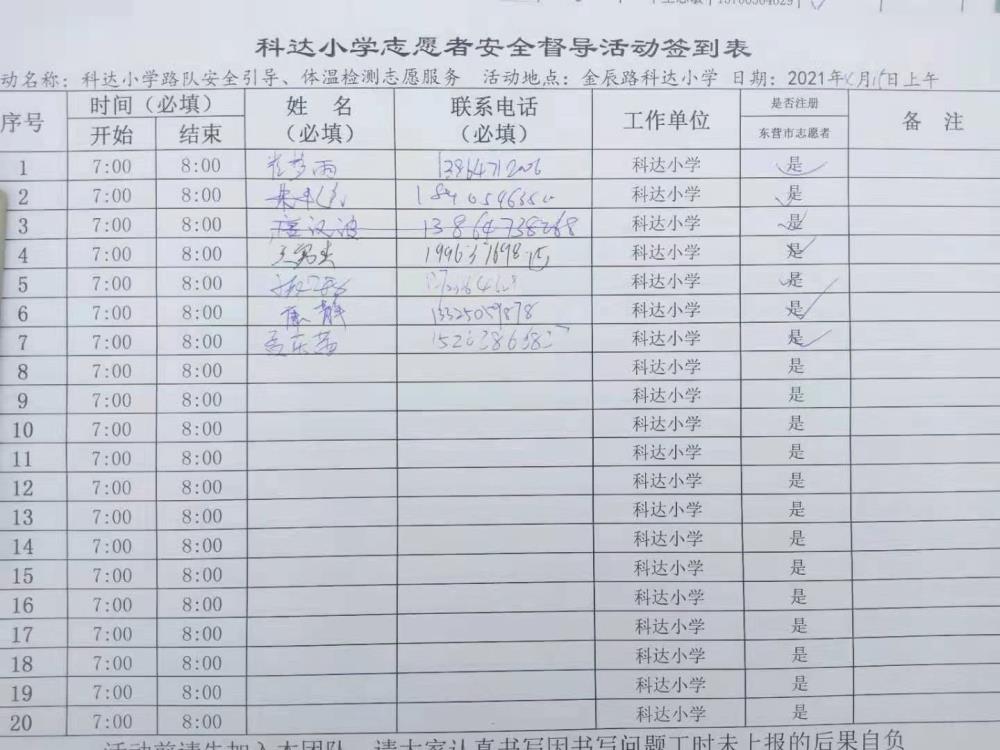 科达小学志愿者安全督导活动签到表
动名称：科达小学路队安全引导、体温检测志愿服务 活动地点：金辰路科达小学 日期：2021年 月 日上午
序号 时间（必填） 姓 名（必填） 联系电话（必填） 工作单位 是否注册 备 注
开始 结束 东营市志愿者
1 7:00 8:00 科达小学 是
2 7:00 8:00 科达小学 是
3 7:00 8:00 13864738268 科达小学 是
4 7:00 8:00 科达小学 是
5 7:00 8:00 科达小学 是
6 7:00 8:00 静 13325059878 科达小学 是
7 7:00 8:00 科达小学 是
8 7:00 8:00 科达小学 是
9 7:00 8:00 科达小学 是
10 7:00 8:00 科达小学 是
11 7:00 8:00 科达小学 是
12 7:00 8:00 科达小学 是
13 7:00 8:00 科达小学 是
14 7:00 8:00 科达小学 是
15 7:00 8:00 科达小学 是
16 7:00 8:00 科达小学 是
17 7:00 8:00 科达小学 是
18 7:00 8:00 科达小学 是
19 7:00 8:00 科达小学 是
20 7:00 8:00 科达小学 是
活动前请先加入本团队，请大家认真书写因书写问题工时未上报的后果自负